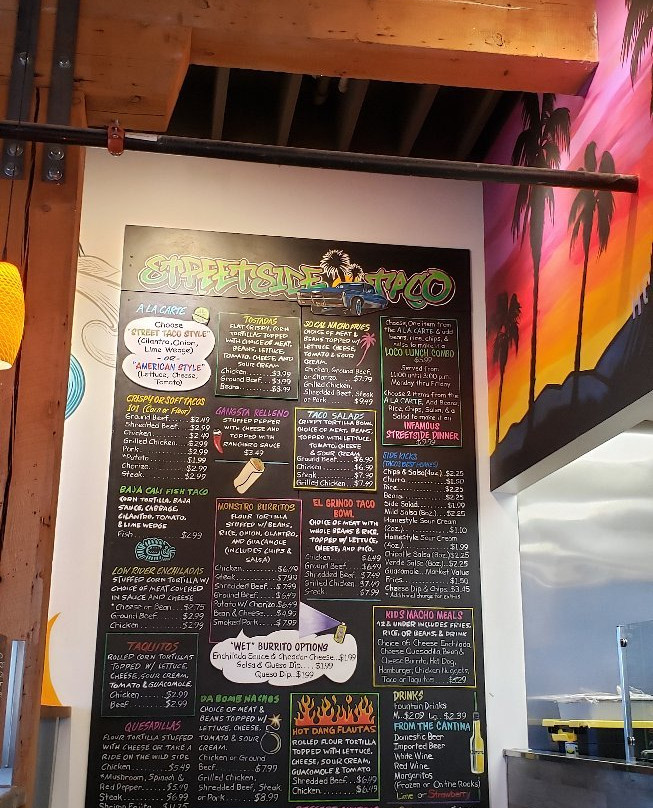 STREETSIDE TACO
A LA CARTE
Choose
"STREET TACO STYLE"
(Cilantro, Onion,
Lime Wedge)
- OR -
"AMERICAN STYLE"
(Lettuce, Cheese,
Tomato)
CRISPY OR SOFT TACOS
101 (Corn or Flour)
Ground Beef
Shredded Beef
Chicken
Grilled Chicken
Pork
*Potato
Chorizo
Steak
BAJA CALI FISH TACO
CORN TORTILLA, BAJA
SAUCE, CABBAGE,
CILANTRO, TOMATO,
& LIME WEDGE
Fish $2.99
LOW RIDER ENCHILADAS
STUFFED CORN TORTILLA W/
CHOICE OF MEAT COVERED
IN SAUCE AND CHEESE
*Cheese or Bean $2.75
Ground Beef $2.99
Chicken $2.99
TAQUITOS
ROLLED CORN TORTILLAS
TOPPED W/ LETTUCE,
CHEESE, SOUR CREAM,
TOMATO & GUACAMOLE
Chicken $2.99
Beef $2.99
QUESADILLAS
FLOUR TORTILLA STUFFED
WITH CHEESE OR TAKE A
RIDE ON THE WILD SIDE
Chicken $5.49
*Mushroom, Spinach &
Red Pepper $5.49
Steak $6.99
TOSTADAS
FLAT CRISPY, CORN
TORTILLAS TOPPED
WITH CHOICE OF MEAT,
BEANS, LETTUCE,
TOMATO, CHEESE AND
SOUR CREAM
Chicken $3.99
Ground Beef
Beans
GANGSTA RELLENO
STUFFED PEPPER
WITH CHEESE AND
TOPPED WITH
RANCHERO SAUCE
$3.49
MONSTRO BURRITOS
FLOUR TORTILLA
STUFFED W/ BEANS,
RICE, ONION, CILANTRO,
AND GUACAMOLE
(INCLUDES CHIPS &
SALSA)
Chicken $6.49
Steak $7.99
Shredded Beef $7.99
Ground Beef $6.49
Potato W/ Chorizo $6.49
Bean & Cheese
Smoked Pork $7.99
"WET" BURRITO OPTIONS
Enchilada Sauce & Cheddar Cheese $1.99
Salsa & Queso Dip $1.99
Queso Dip $1.99
DA BOMB NACHOS
CHOICE OF MEAT &
BEANS TOPPED W/
LETTUCE, CHEESE,
TOMATO & SOUR
CREAM.
Chicken or Ground
Beef $7.99
Grilled Chicken,
Shredded Beef, Steak
or Pork $8.99
30 CAL NACHO FRIES
CHOICE OF MEAT &
BEANS TOPPED W/
LETTUCE, CHEESE,
TOMATO & SOUR
CREAM
Chicken, Ground Beef,
or Chorizo $7.99
Grilled Chicken,
Shredded Beef, Steak
or Pork
TACO SALADS
CRISPY TORTILLA BOWL
CHOICE OF MEAT, BEANS,
TOPPED WITH LETTUCE,
TOMATO, CHEESE
& SOUR CREAM
Ground Beef $6.99
Chicken $6.99
Steak $7.99
Grilled Chicken $7.99
EL GRINGO TACO
BOWL
CHOICE OF MEAT WITH
WHOLE BEANS & RICE,
TOPPED W/ LETTUCE,
CHEESE, AND PICO.
Chicken $6.49
Ground Beef $6.49
Shredded Beef $7.49
Grilled Chicken $7.49
Steak $7.99
HOT DANG FLAUTAS
ROLLED FLOUR TORTILLA
TOPPED WITH LETTUCE,
CHEESE, SOUR CREAM,
GUACAMOLE & TOMATO
Shredded Beef $6.49
Chicken $6.49
Choose, One item from
the A LA CARTE & add
beans, rice, chips, &
salsa to make it a
LOCO LUNCH COMBO
Served from
11:00 until 3:00 p.m.
Monday thru Friday
Choose 2 Items from the
A LA CARTE, And Beans,
Rice, Chips, Salsa, & a
Salad to make it an
INFAMOUS
STREETSIDE DINNER
SIDE KICKS
Chips & Salsa (4oz) $2.25
Churro $1.50
Rice $2.25
Beans $2.25
Side Salad
Mild Salsa (8oz) $2.25
Homestyle Sour Cream
(2oz) $1.10
Homestyle Sour Cream
(4oz) $1.99
Chipotle Salsa (8oz) $2.25
Verde Salsa (8oz) $2.25
Guacamole Market Value
Fries $1.50
Cheese Dip & Chips $3.45
*Additional charge for extras
KID'S MACHO MEALS
12 & UNDER INCLUDES FRIES,
RICE OR BEANS, & DRINK
Choice of Cheese Enchilada,
Cheese Quesadilla, Bean &
Cheese Burrito, Hot Dog,
Hamburger, Chicken Nuggets,
Taco or Taquitos $4.29
DRINKS
Fountain Drinks
M. $2.09 Lg. $2.39
FROM THE CANTINA
Domestic Beer
Imported Beer
White Wine
Red Wine
Margaritas
(Frozen or On the Rocks)
Lime or Strawberry